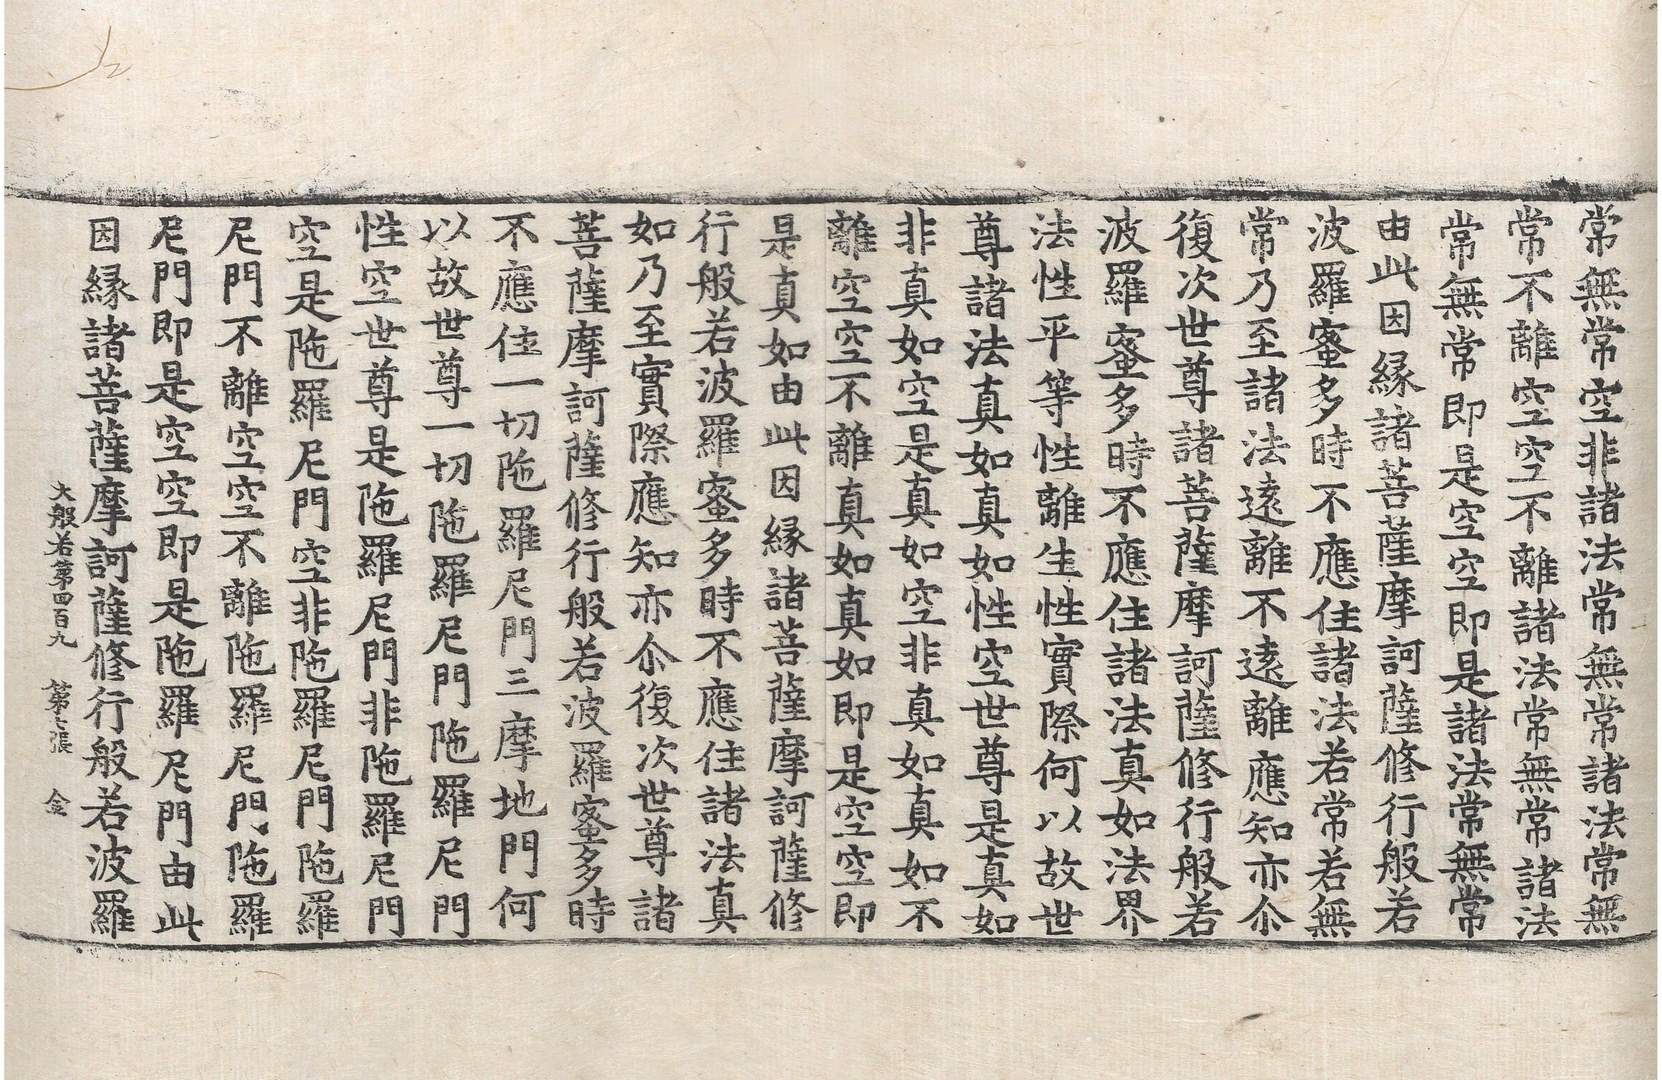 常無常空非諸法常無常諸法常無
常不離空空不離諸法常無常諸法
常無常即是空空即是諸法常無常
由此因縁諸菩薩摩訶薩修行般若
波羅蜜多時不應住諸法若常若無
常乃至諸法遠離不遠離應知亦尒
復次世尊諸菩薩摩訶薩修行般若
波羅蜜多時不應住諸法真如法界
法性平等性離生性實際何以故世
尊諸法真如真如性空世尊是真如
非真如空是真如空非真如真如不
離空空不離真如真如即是空空即
是真如由此因縁諸菩薩摩訶薩修
行般若波羅蜜多時不應住諸法真
如乃至實際應知亦尒復次世尊諸
菩薩摩訶薩修行般若波羅蜜多時
不應住一切陁羅尼門三摩地門何
以故世尊一切陁羅尼門陁羅尼門
性空世尊是陁羅尼門非陁羅尼門
空是陁羅尼門空非陁羅尼門陁羅
尼門不離空空不離陁羅尼門陁羅
尼門即是空空即是陁羅尼門由此
因縁諸菩薩摩訶薩修行般若波羅
大般若第四百九 第六張 金